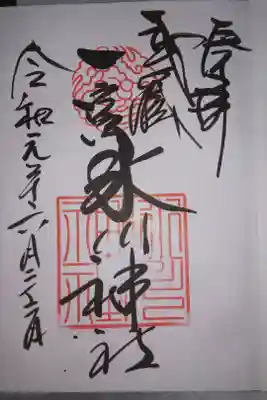 奉拝
武蔵
一宮氷川神社
令和元年六月二十二日